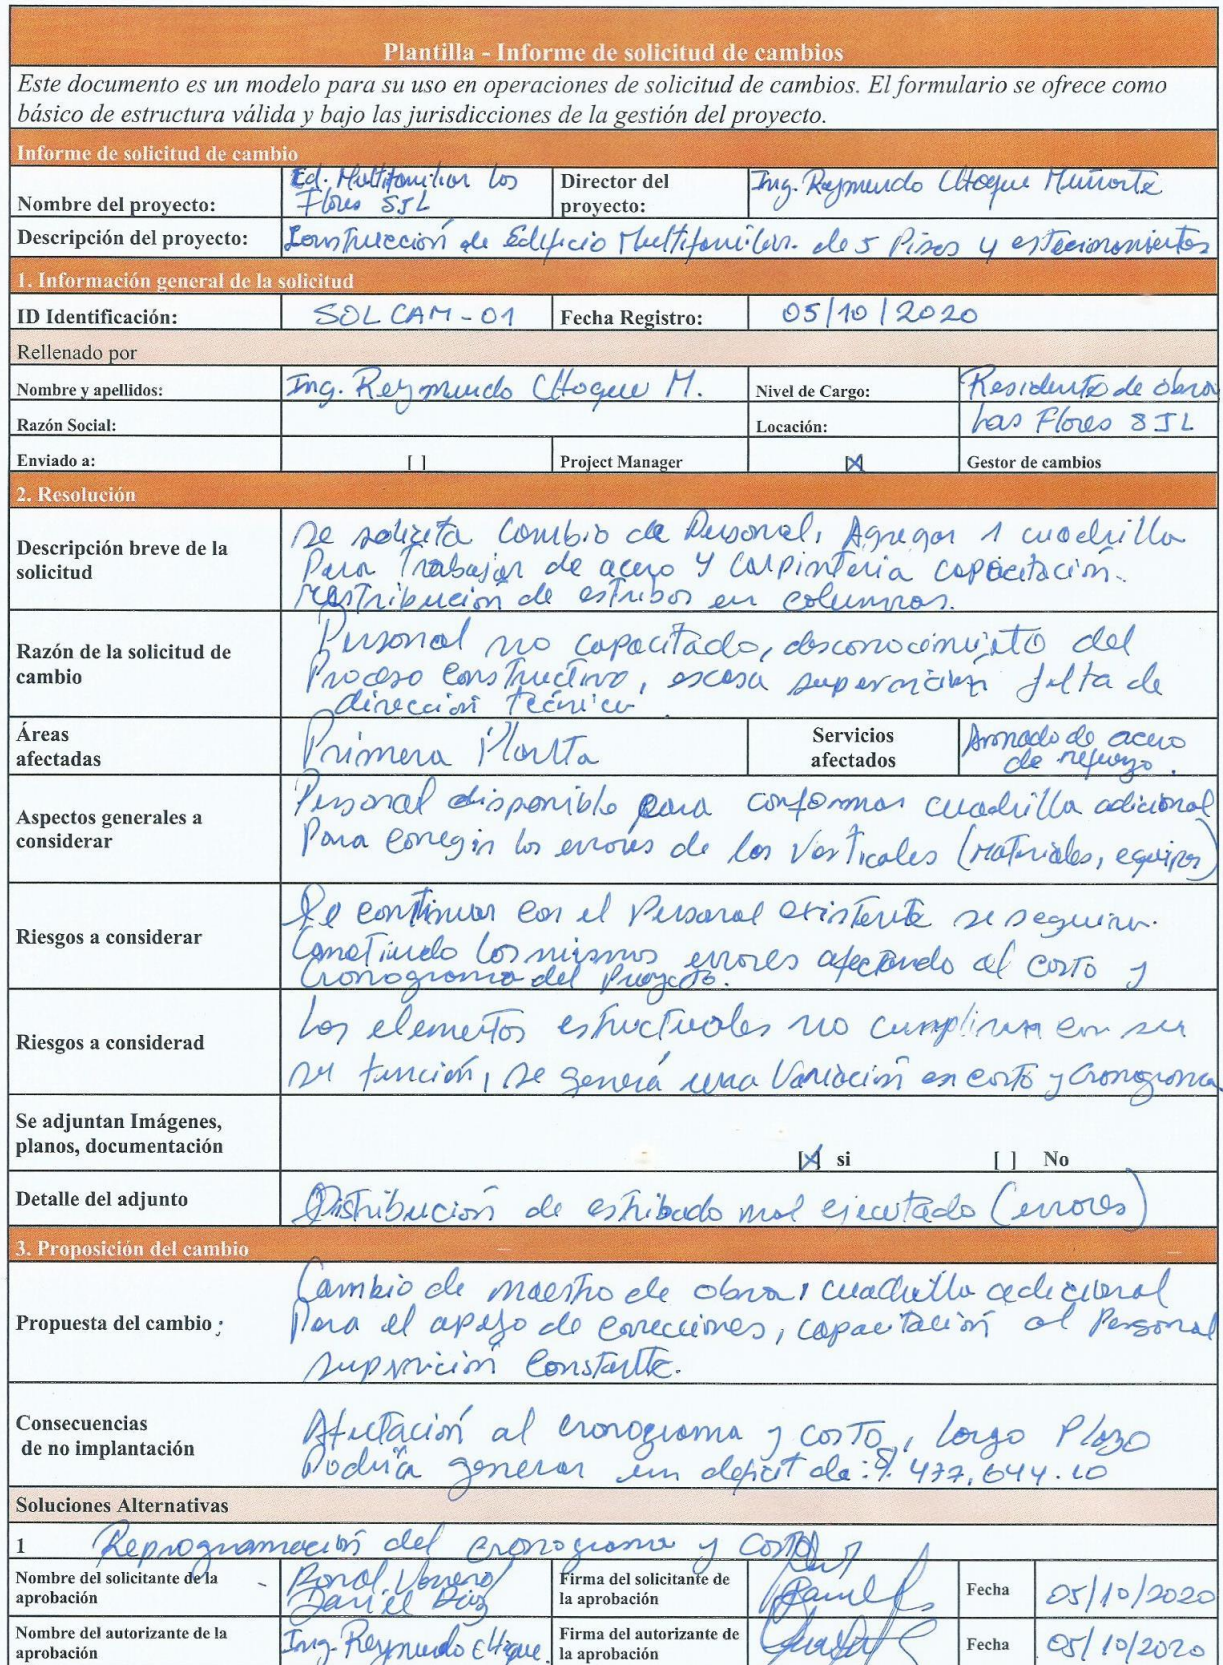 Plantilla - Informe de solicitud de cambios
Este documento es un modelo para su uso en operaciones de solicitud de cambios. El formulario se ofrece como
básico de estructura válida y bajo las jurisdicciones de la gestión del proyecto.
Informe de solicitud de cambio
Nombre del proyecto: Ed. Multifamiliar Los
Flores SJL
Director del
proyecto: Ing. Reymundo Choque
Descripción del proyecto: Construcción de Edificio Multifamiliar de 5 Pisos y estacionamientos
1. Información general de la solicitud
ID Identificación: SOLCAM-01 Fecha Registro: 05/10/2020
Rellenado por
Nombre y apellidos: Ing. Reymundo Choque M. Nivel de Cargo: Residente de obra
Razón Social: Locación: Las Flores SJL
Enviado a: [ ] Project Manager [X] Gestor de cambios
2. Resolución
Descripción breve de la
solicitud
se solicita Cambio de Personal, Agregar 1 cuadrilla
Para Trabajar de acero y Carpinteria capacitación.
de estribos en columnas.
Razón de la solicitud de
cambio
Personal no capacitado, desconocimiento del
Proceso Constructivo, escasa supervición falta de
dirección Técnica.
Áreas
afectadas
Primera Planta
Servicios
afectados
Armado de acero
de refuerzo.
Aspectos generales a
considerar
Personal disponible para conformar cuadrilla adicional
Para corregir los errores de los Verticales (materiales, equipos)
Riesgos a considerar
De continuar con el Personal existente se seguira
Cometiendo los mismos errores afectando al costo y
Cronograma del Proyecto.
Riesgos a considerad
Los elementos estructurales no cumpliran con su
su función, se genera una Variación en costo y Cronograma
Se adjuntan Imágenes,
planos, documentación
[X] si [ ] No
Detalle del adjunto Distribución de estribado mal ejecutado (errores)
3. Proposición del cambio
Propuesta del cambio :
Cambio de maestro de obra, cuadrilla adicional
Para el apoyo de correcciones, capacitación al Personal
constante.
Consecuencias
de no implantación
Afectación al cronograma y costo, largo Plazo
Podría generar un deficit de: S/. 477,644.10
Soluciones Alternativas
1 Reprogramación del cronograma y Costo
Nombre del solicitante de la
aprobación
Daniel Diaz
Firma del solicitante de
la aprobación
Fecha 05/10/2020
Nombre del autorizante de la
aprobación
Ing. Reymundo Choque.
Firma del autorizante de
la aprobación
Fecha 05/10/2020